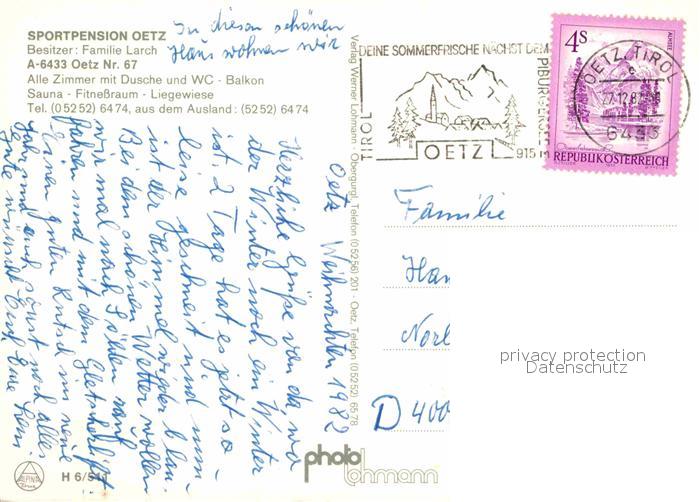 SPORTPENSION OETZ
Besitzer: Familie Larch
A-6433 Oetz Nr. 67
Alle Zimmer mit Dusche und WC - Balkon
Sauna - Fitneßraum - Liegewiese
Tel. (05252) 6474, aus dem Ausland: (5252) 6474
In diesem schönen
Haus wohnen wir
Oetz Weihnachten 1982
Herzliche Grüße von da, wo
der Winter noch ein Winter
ist. 2 Tage hat es jetzt so-
leise geschneit und nun
ist der Himmel wieder blau.
Bei dem schönen Wetter wollen
wir mal nach Sölden rauf
fahren und mit dem Gletscherlift
Einen guten Rutsch ins neue
Jahr und auch sonst noch alles
Gute wünscht Euch Eure
Verlag Werner Lohmann · Obergurgl, Telefon (05256) 201 · Oetz, Telefon (05252) 6578
DEINE SOMMERFRISCHE NÄCHST DEM
PIBURGERSEE
TIROL
OETZ
915 m
OETZ, TIROL
27.12.82
6433
4S
REPUBLIK ÖSTERREICH
Familie
Han
Norl
D 400
privacy protection
Datenschutz
ALPINA
H 6/511
photo
lohmann